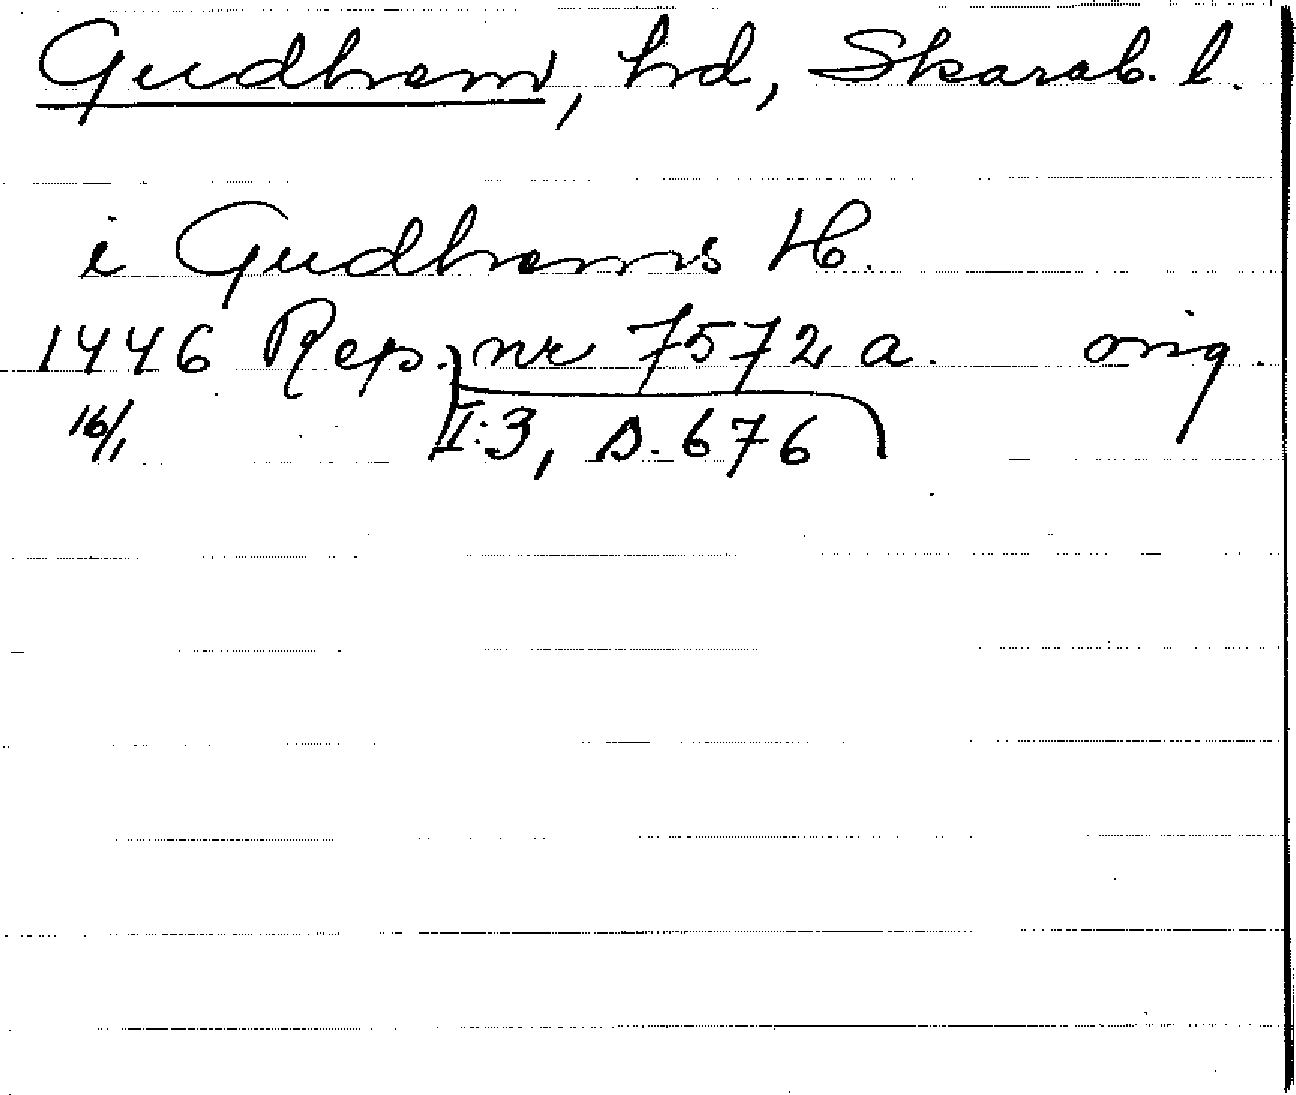 Gudhem, hd, Skarab. l.
i Gudhems H.
1446 Rep. nr 7572 a. orig.
16/1 I:3, s. 676